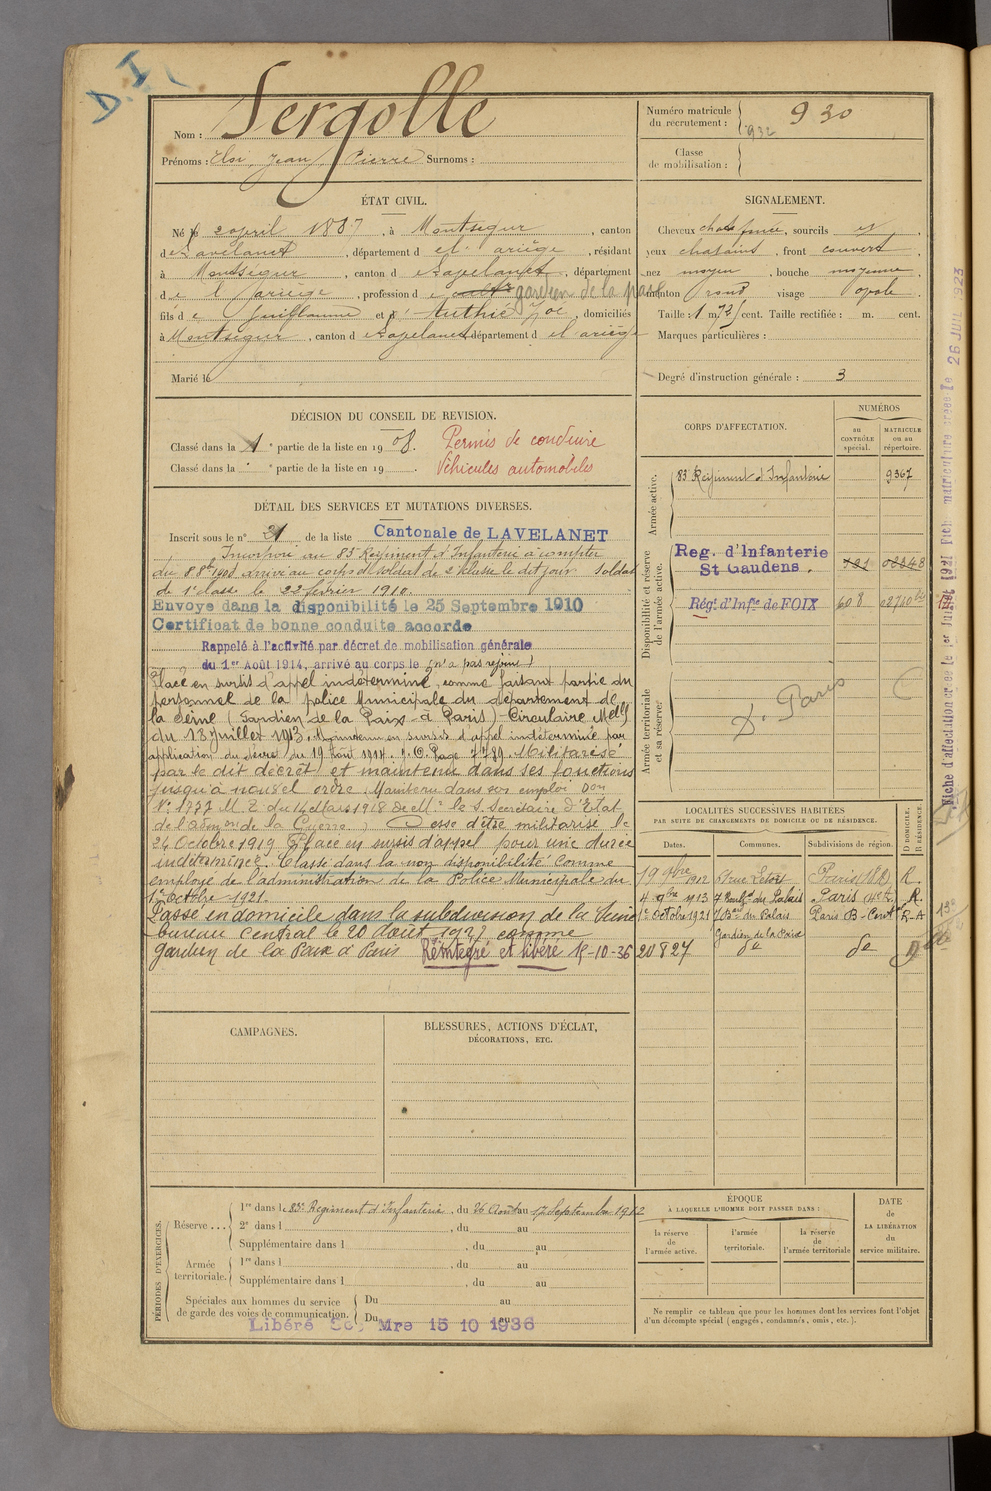 D. I
Nom : Sergolle
Prénoms : Jean, Pierre Surnoms :
Numéro matricule
du recrutement : 930
932
Classe
de mobilisation :
ÉTAT CIVIL.
Né le 2 april 1887, à Montsegur, canton
de Lavelanet, département de l'ariège, résidant
à Montsegur, canton de Lavelanet, département
de l'ariège, profession de gardien de la paix
fils de Guillaume et d' Authié Zoé, domiciliés
à Montsegur, canton de Lavelanet département de l'ariège
Marié le
SIGNALEMENT.
Cheveux chat foncé, sourcils id,
yeux chatains, front couvert,
nez moyen, bouche moyenne,
menton rond visage ovale
Taille : 1 m. 73 cent. Taille rectifiée : m. cent.
Marques particulières :
Degré d'instruction générale : 3
DÉCISION DU CONSEIL DE REVISION.
Classé dans la 1e partie de la liste en 1908.
Classé dans la e partie de la liste en 19
Permis de conduire
Véhicules automobiles
DÉTAIL DES SERVICES ET MUTATIONS DIVERSES.
Inscrit sous le n° 21 de la liste Cantonale de LAVELANET
Incorporé au 83e Régiment d'Infanterie à compter
du 8 8bre 1908 arrivé au corps et soldat de 2e classe le dit jour Soldat
de 1e classe le 22 février 1910.
Envoyé dans la disponibilité le 25 Septembre 1910
Certificat de bonne conduite accordé
Rappelé à l'activité par décret de mobilisation générale
du 1er Août 1914, arrivé au corps le (n'a pas rejoint)
Placé en sursis d'appel indéterminé, comme faisant partie du
personnel de la police Municipale du département de
la Seine (Gardien de la Paix à Paris) Circulaire Melle
du 13 juillet 1913. Maintenu en sursis d'appel indéterminé par
application du décret du 19 Août 1914. J. O. Page 7489. Militarisé
par le dit décret et maintenu dans ses fonctions
jusqu'à nouvel ordre. Maintenu dans son emploi Don
N° 1777 M. Z. du 14 Mars 1918 de Mr le S. Secrétaire d'Etat
de l'admon de la Guerre. Cesse d'être militarisé le
24 Octobre 1919 Placé en sursis d'appel pour une durée
indéterminée. Classé dans la non disponibilité comme
employé de l'administration de la Police Municipale du
1er Octobre 1921.
Passé en domicile dans la subdivision de la Seine
bureau central le 20 Août 1927 comme
gardien de la Paix à Paris Réintégré et libéré 15-10-36
CORPS D'AFFECTATION.
NUMÉROS
au
CONTRÔLE
spécial.
MATRICULE
ou au
répertoire.
Armée active.
83e Régiment d'Infanterie 9367
Disponibilité et réserve
de l'armée active.
Reg. d'Infanterie
St Gaudens.
Régt d'Infie de FOIX 608
Armée territoriale
et sa réserve
D. Paris
LOCALITÉS SUCCESSIVES HABITÉES
PAR SUITE DE CHANGEMENTS DE DOMICILE OU DE RÉSIDENCE.
Dates. Communes. Subdivisions de région. D DOMICILE. R RÉSIDENCE.
19 9bre 1912 rue Letort Paris R.
4 9bre 1913 7 Boulevd du Palais Paris R.
1er Octobre 1921 7 Bd du Palais Paris B-Cent R-A
Gardien de la Paix
20 8 27 do do D
CAMPAGNES.
BLESSURES, ACTIONS D'ÉCLAT,
DÉCORATIONS, ETC.
PÉRIODES D'EXERCICES.
Réserve ... 1re dans le 83e Régiment d'Infanterie, du 26 Août au 17 Septembre 1912
2e dans l , du au
Supplémentaire dans l , du au
Armée
territoriale.
1re dans l , du au
Supplémentaire dans l , du au
Spéciales aux hommes du service
de garde des voies de communication.
Du au
Du au
Libéré Mre 15 10 1936
ÉPOQUE
À LAQUELLE L'HOMME DOIT PASSER DANS :
la réserve
de
l'armée active.
l'armée
territoriale.
la réserve
de
l'armée territoriale
DATE
de
LA LIBÉRATION
du
service militaire.
Ne remplir ce tableau que pour les hommes dont les services font l'objet
d'un décompte spécial (engagés, condamnés, omis, etc.).
Fiche d'affectation créée le 1er Juillet 1921 Fiche matriculaire créée le 26 JUIL 1923